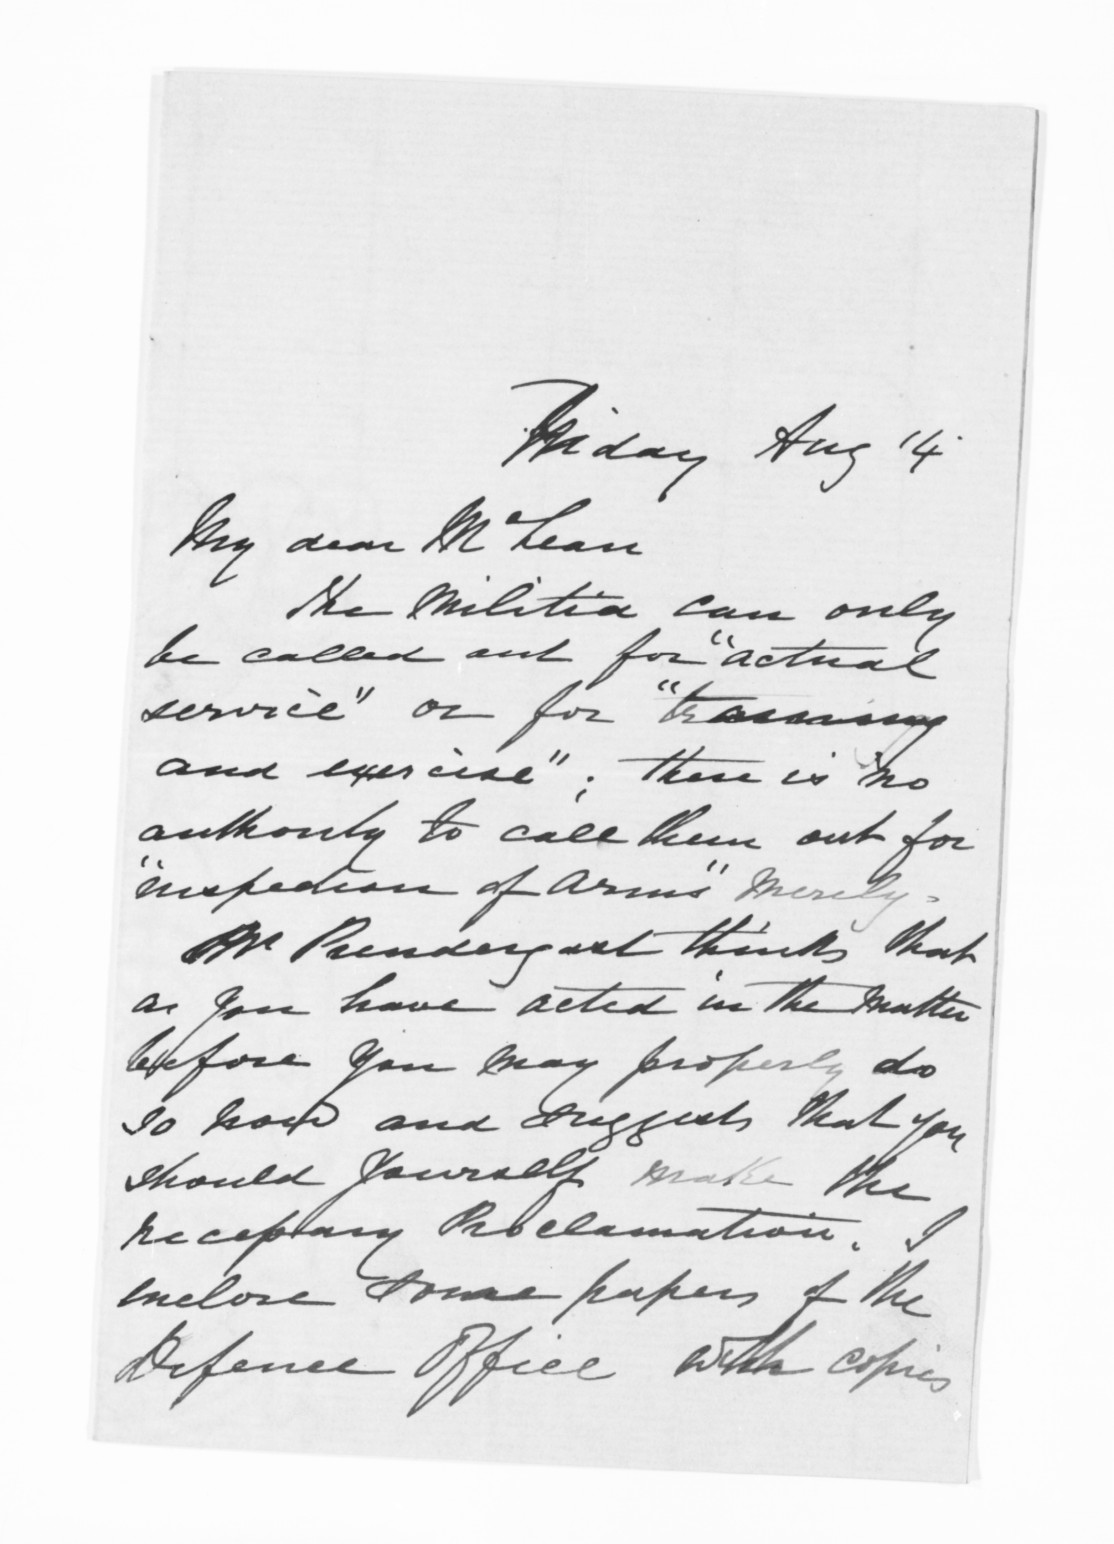 Friday Aug 14
My dear McLean
The Militia can only
be called out for "actual
service" or for "training
and exercise"; there is no
authority to call them out for
"inspection of Arms" merely.
Mr Prendergast thinks that
as you have acted in the matter
before you may properly do
so now and suggests that you
should yourself make the
necessary Proclamation. I
enclose some papers of the
Defence Office with copies